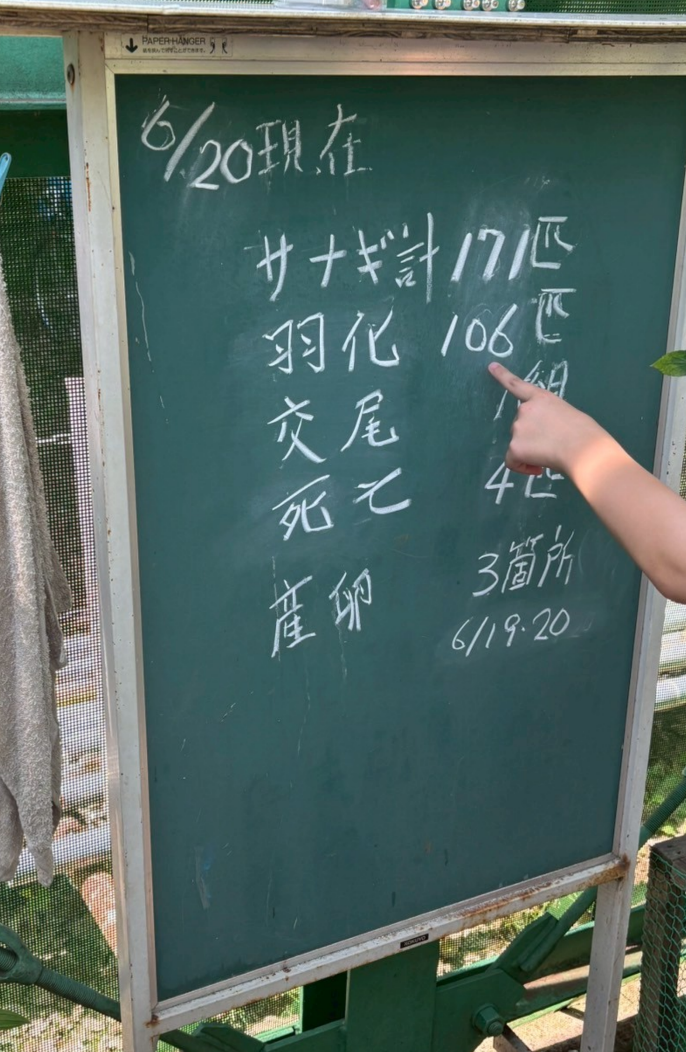 PAPER HANGER
6/20現在
サナギ計 171匹
羽化 106匹
交尾 組
死亡 4匹
産卵 3箇所
6/19・20